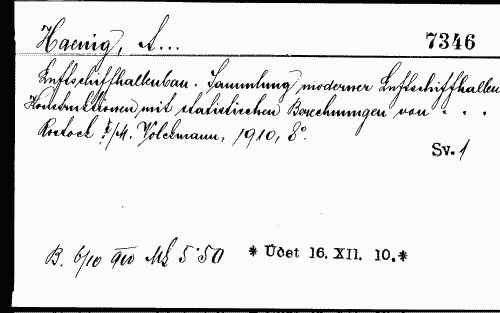 Haenig, A...
7346
Luftschiffhallenbau. Sammlung moderner Luftschiffhallen
Konstruktionen mit statistischen Berechnungen von . . .
Rostock i/M. Volckmann, 1910, 8°.
Sv. 1
B. 6/10 910 Mk 5·50 * Údet 16. XII. 10.*